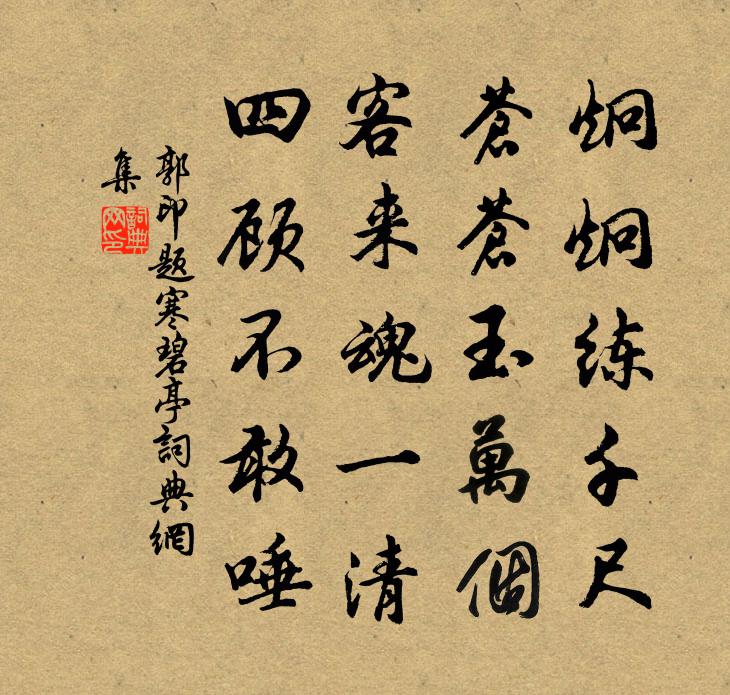 炯炯练千尺
苍苍玉萬個
客来魂一清
四顾不敢唾
郭印题寒碧亭詞典網
集
詞典
网印